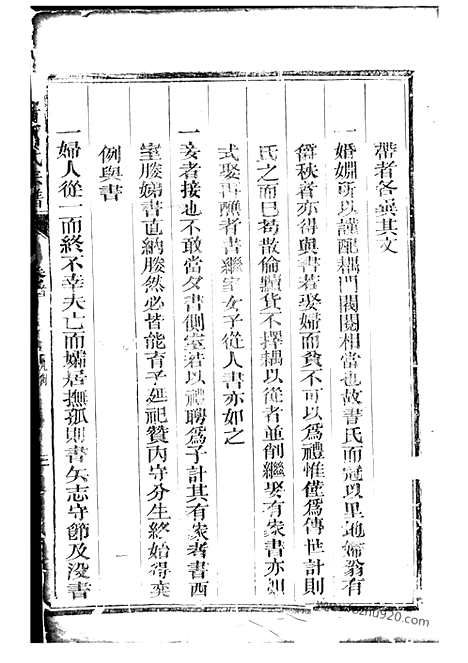 帶者各與其文
一婚姻所以謹配耦門閥閱相當也故書氏而冠以里地婦翁有
爵秩者亦得與書若娶婦而貧不可以為禮惟僅為傳世計則
氏之而已茍散倫黷貨不擇耦以從者並削繼娶有家書亦如
式娶再醮者書繼室女子從人書亦如之
一妾者接也不敢當夕書側室若以禮聘為子計其有家者書西
室媵娣書直納媵然必皆能有子延祀贊內守分生終始得案
例與書
一婦人從一而終不幸夫亡而孀居撫孤則書矢志守節及沒書